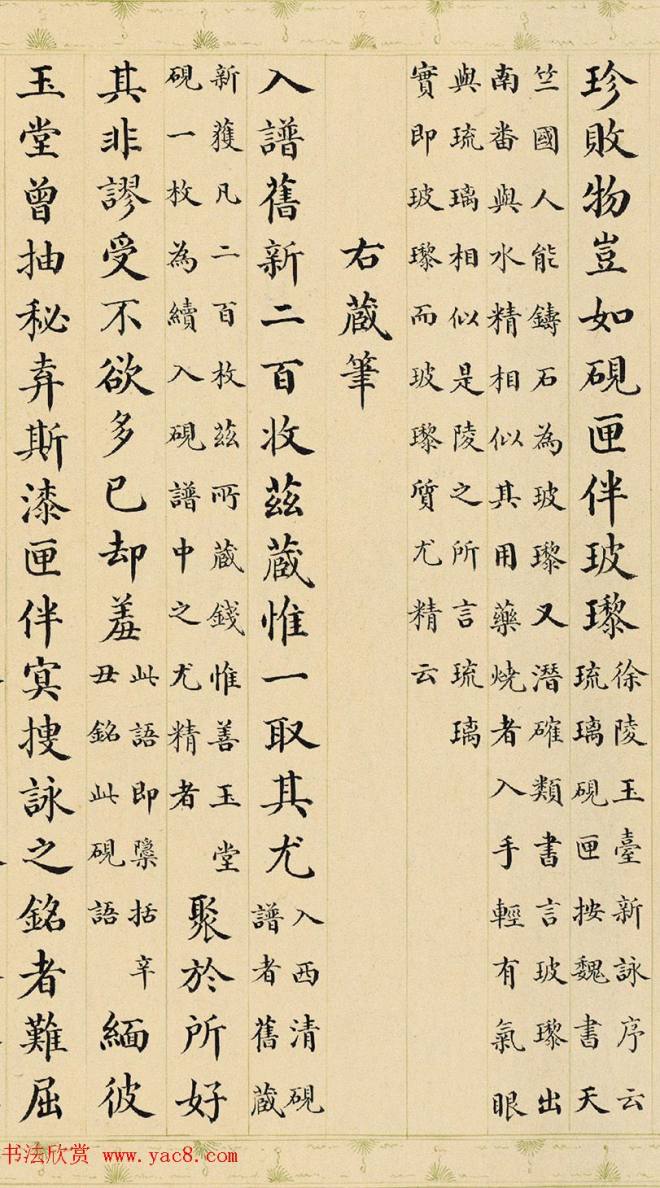 珍敗物豈如硯匣伴玻瓈徐陵玉臺新詠序云琉璃硯匣按魏書天
竺國人能鑄石為玻瓈又潛確類書言玻瓈出
南番與水精相似其用藥燒者入手輕有氣眼
與琉璃相似是陵之所言琉璃
實即玻瓈而玻瓈質尤精云
右蔵筆
入譜舊新二百收茲蔵惟一取其尤入西清硯譜者舊蔵
新獲凡二百枚茲所蔵錢惟善玉堂硯一枚為續入硯譜中之尤精者聚於所好
其非謬受不欲多已却羞此語即檃括辛丑銘此硯語緬彼
玉堂曾抽秘弆斯漆匣伴㝠搜詠之銘者難屈
书法欣赏 www.yac8.com